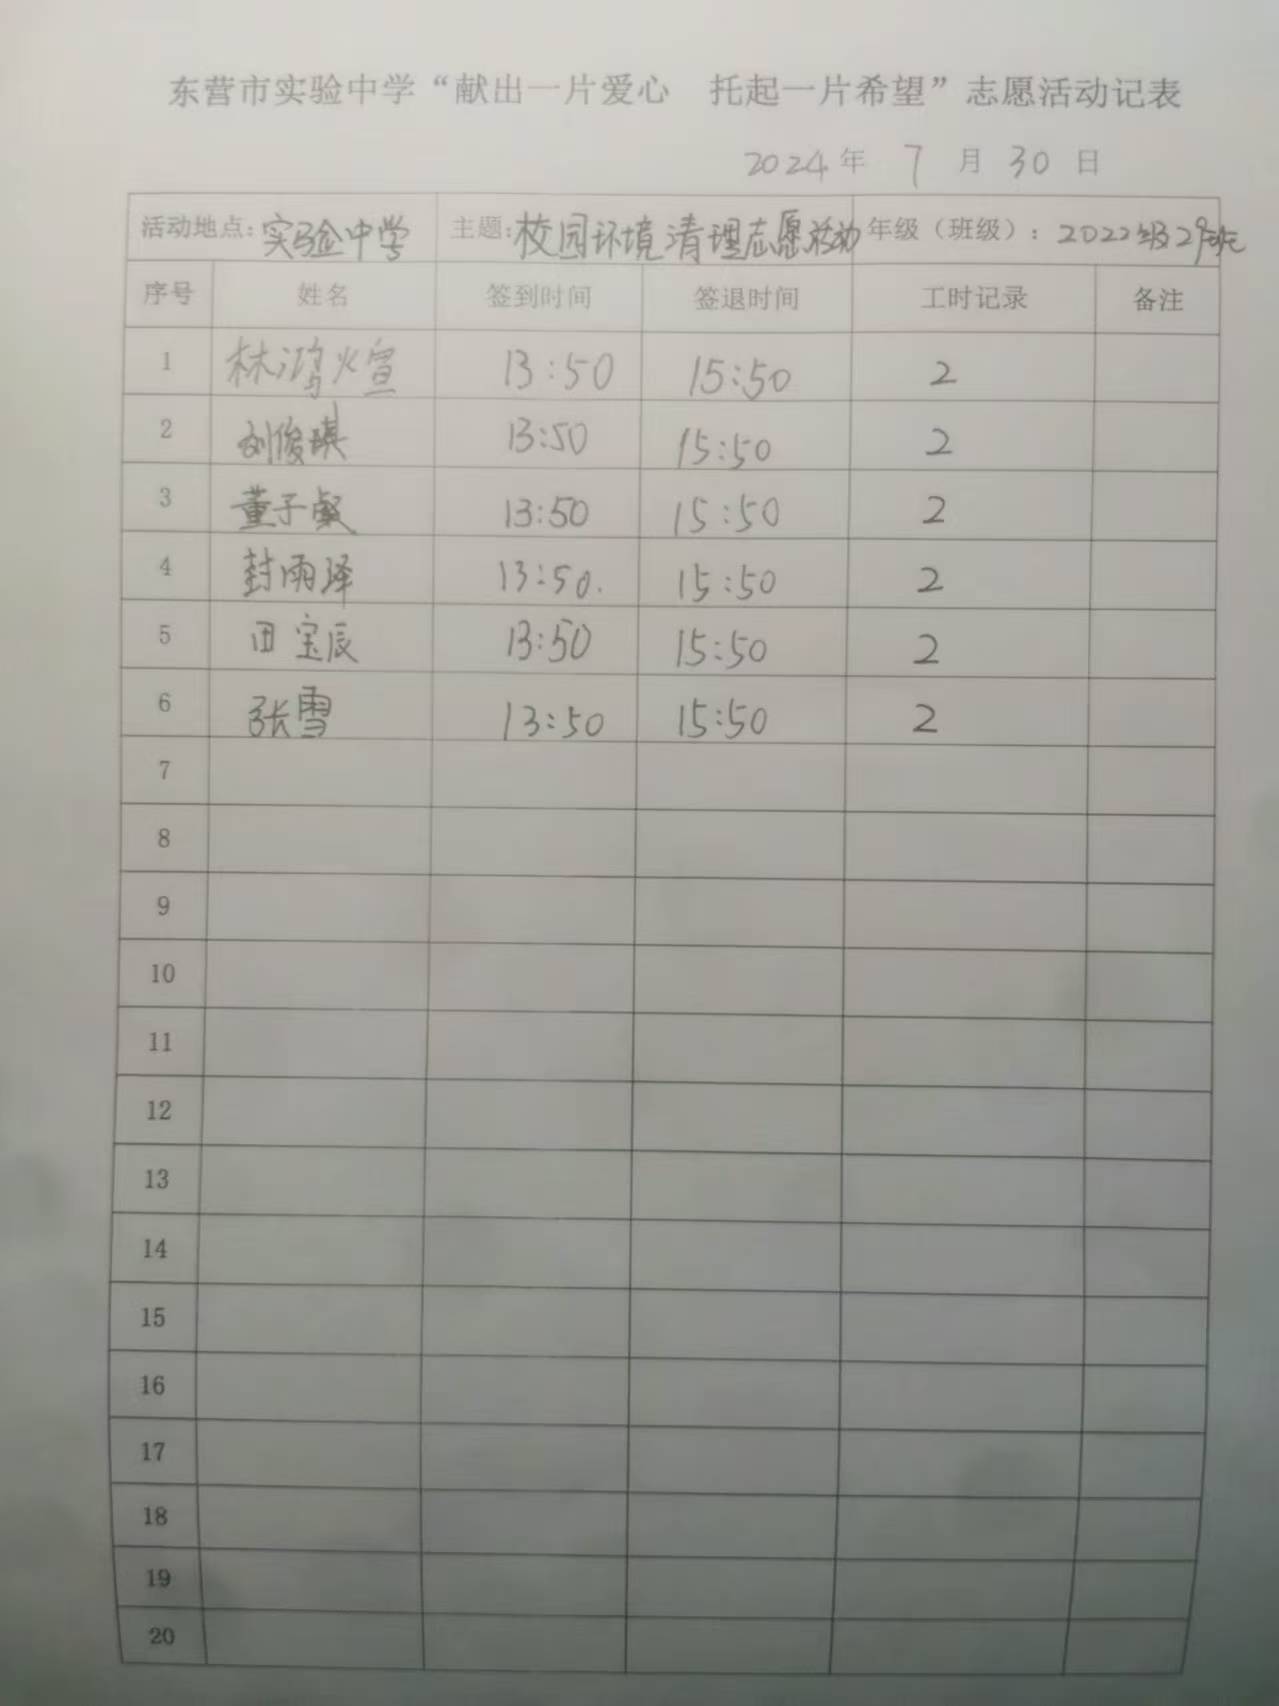 东营市实验中学“献出一片爱心 托起一片希望”志愿活动记表
2024年 7 月 30 日
活动地点: 实验中学 主题: 校园环境清理志愿活动 年级（班级）: 2022级29班
序号 姓名 签到时间 签退时间 工时记录 备注
1 林鸿煊 13:50 15:50 2
2 刘俊琪 13:50 15:50 2
3 董子 13:50 15:50 2
4 封雨泽 13:50. 15:50 2
5 田宝辰 13:50 15:50 2
6 张雪 13:50 15:50 2
7
8
9
10
11
12
13
14
15
16
17
18
19
20